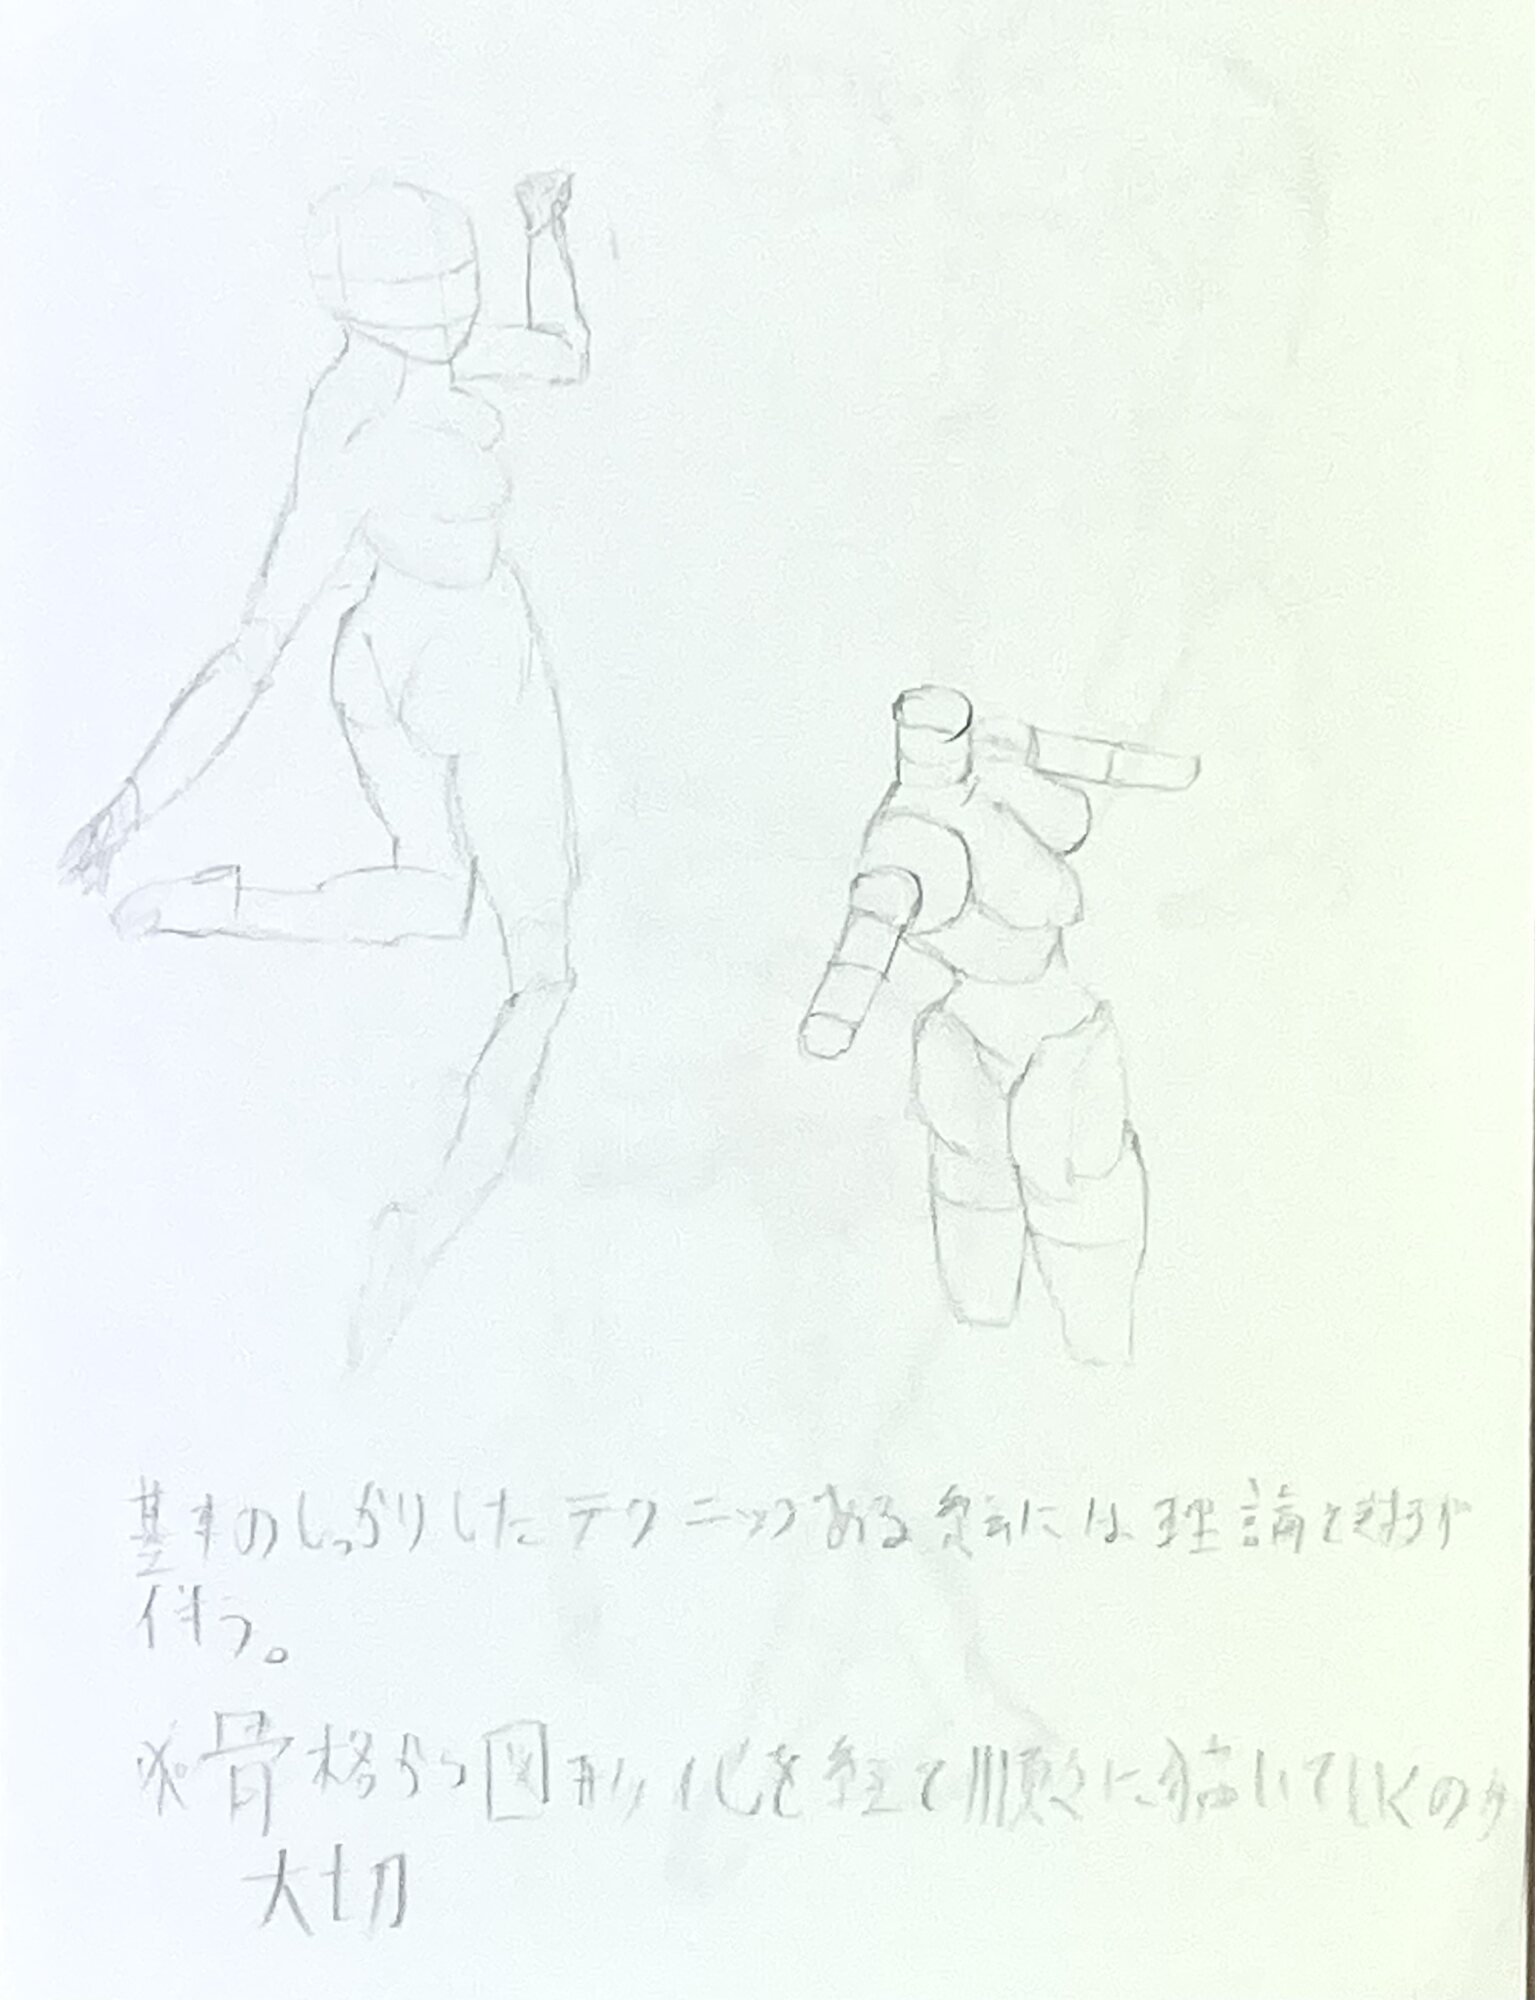 基本のしっかりしたテクニックある絵には理論と
伴う。
※骨格から図形化を経て順々に描いていくのが
大切